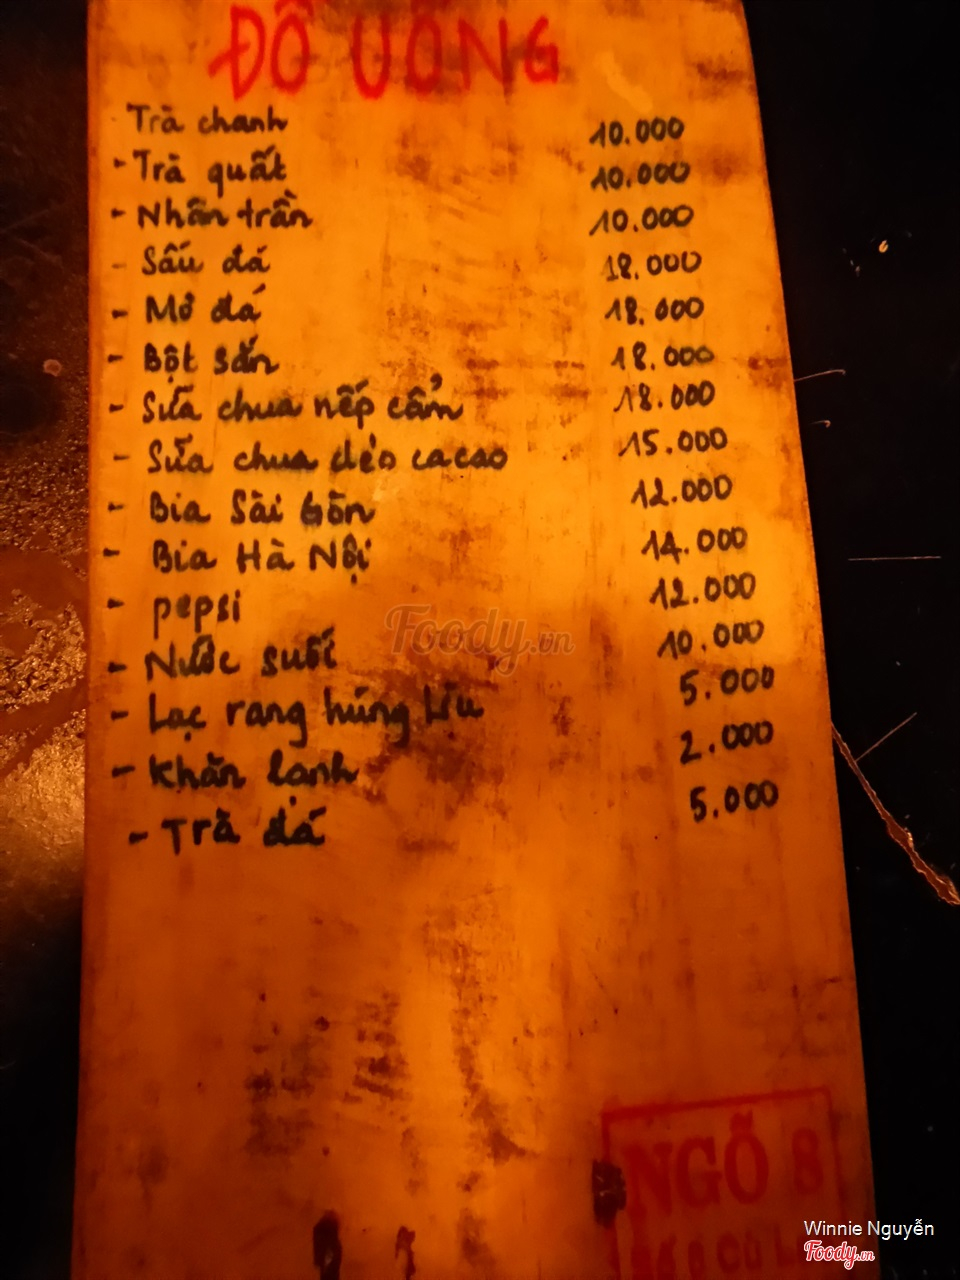 ĐỒ UỐNG
Trà chanh 10.000
- Trà quất 10.000
- Nhân trần 10.000
- Sấu đá 18.000
- Mơ đá 18.000
- Bột sắn 18.000
- Sữa chua nếp cẩm 18.000
- Sữa chua dẻo cacao 15.000
- Bia Sài Gòn 12.000
- Bia Hà Nội 14.000
- pepsi 12.000
- Nước suối 10.000
- Lạc rang húng lìu 5.000
- Khăn lạnh 2.000
- Trà đá 5.000
Foody.vn
NGÕ 8
Winnie Nguyễn
Foody.vn